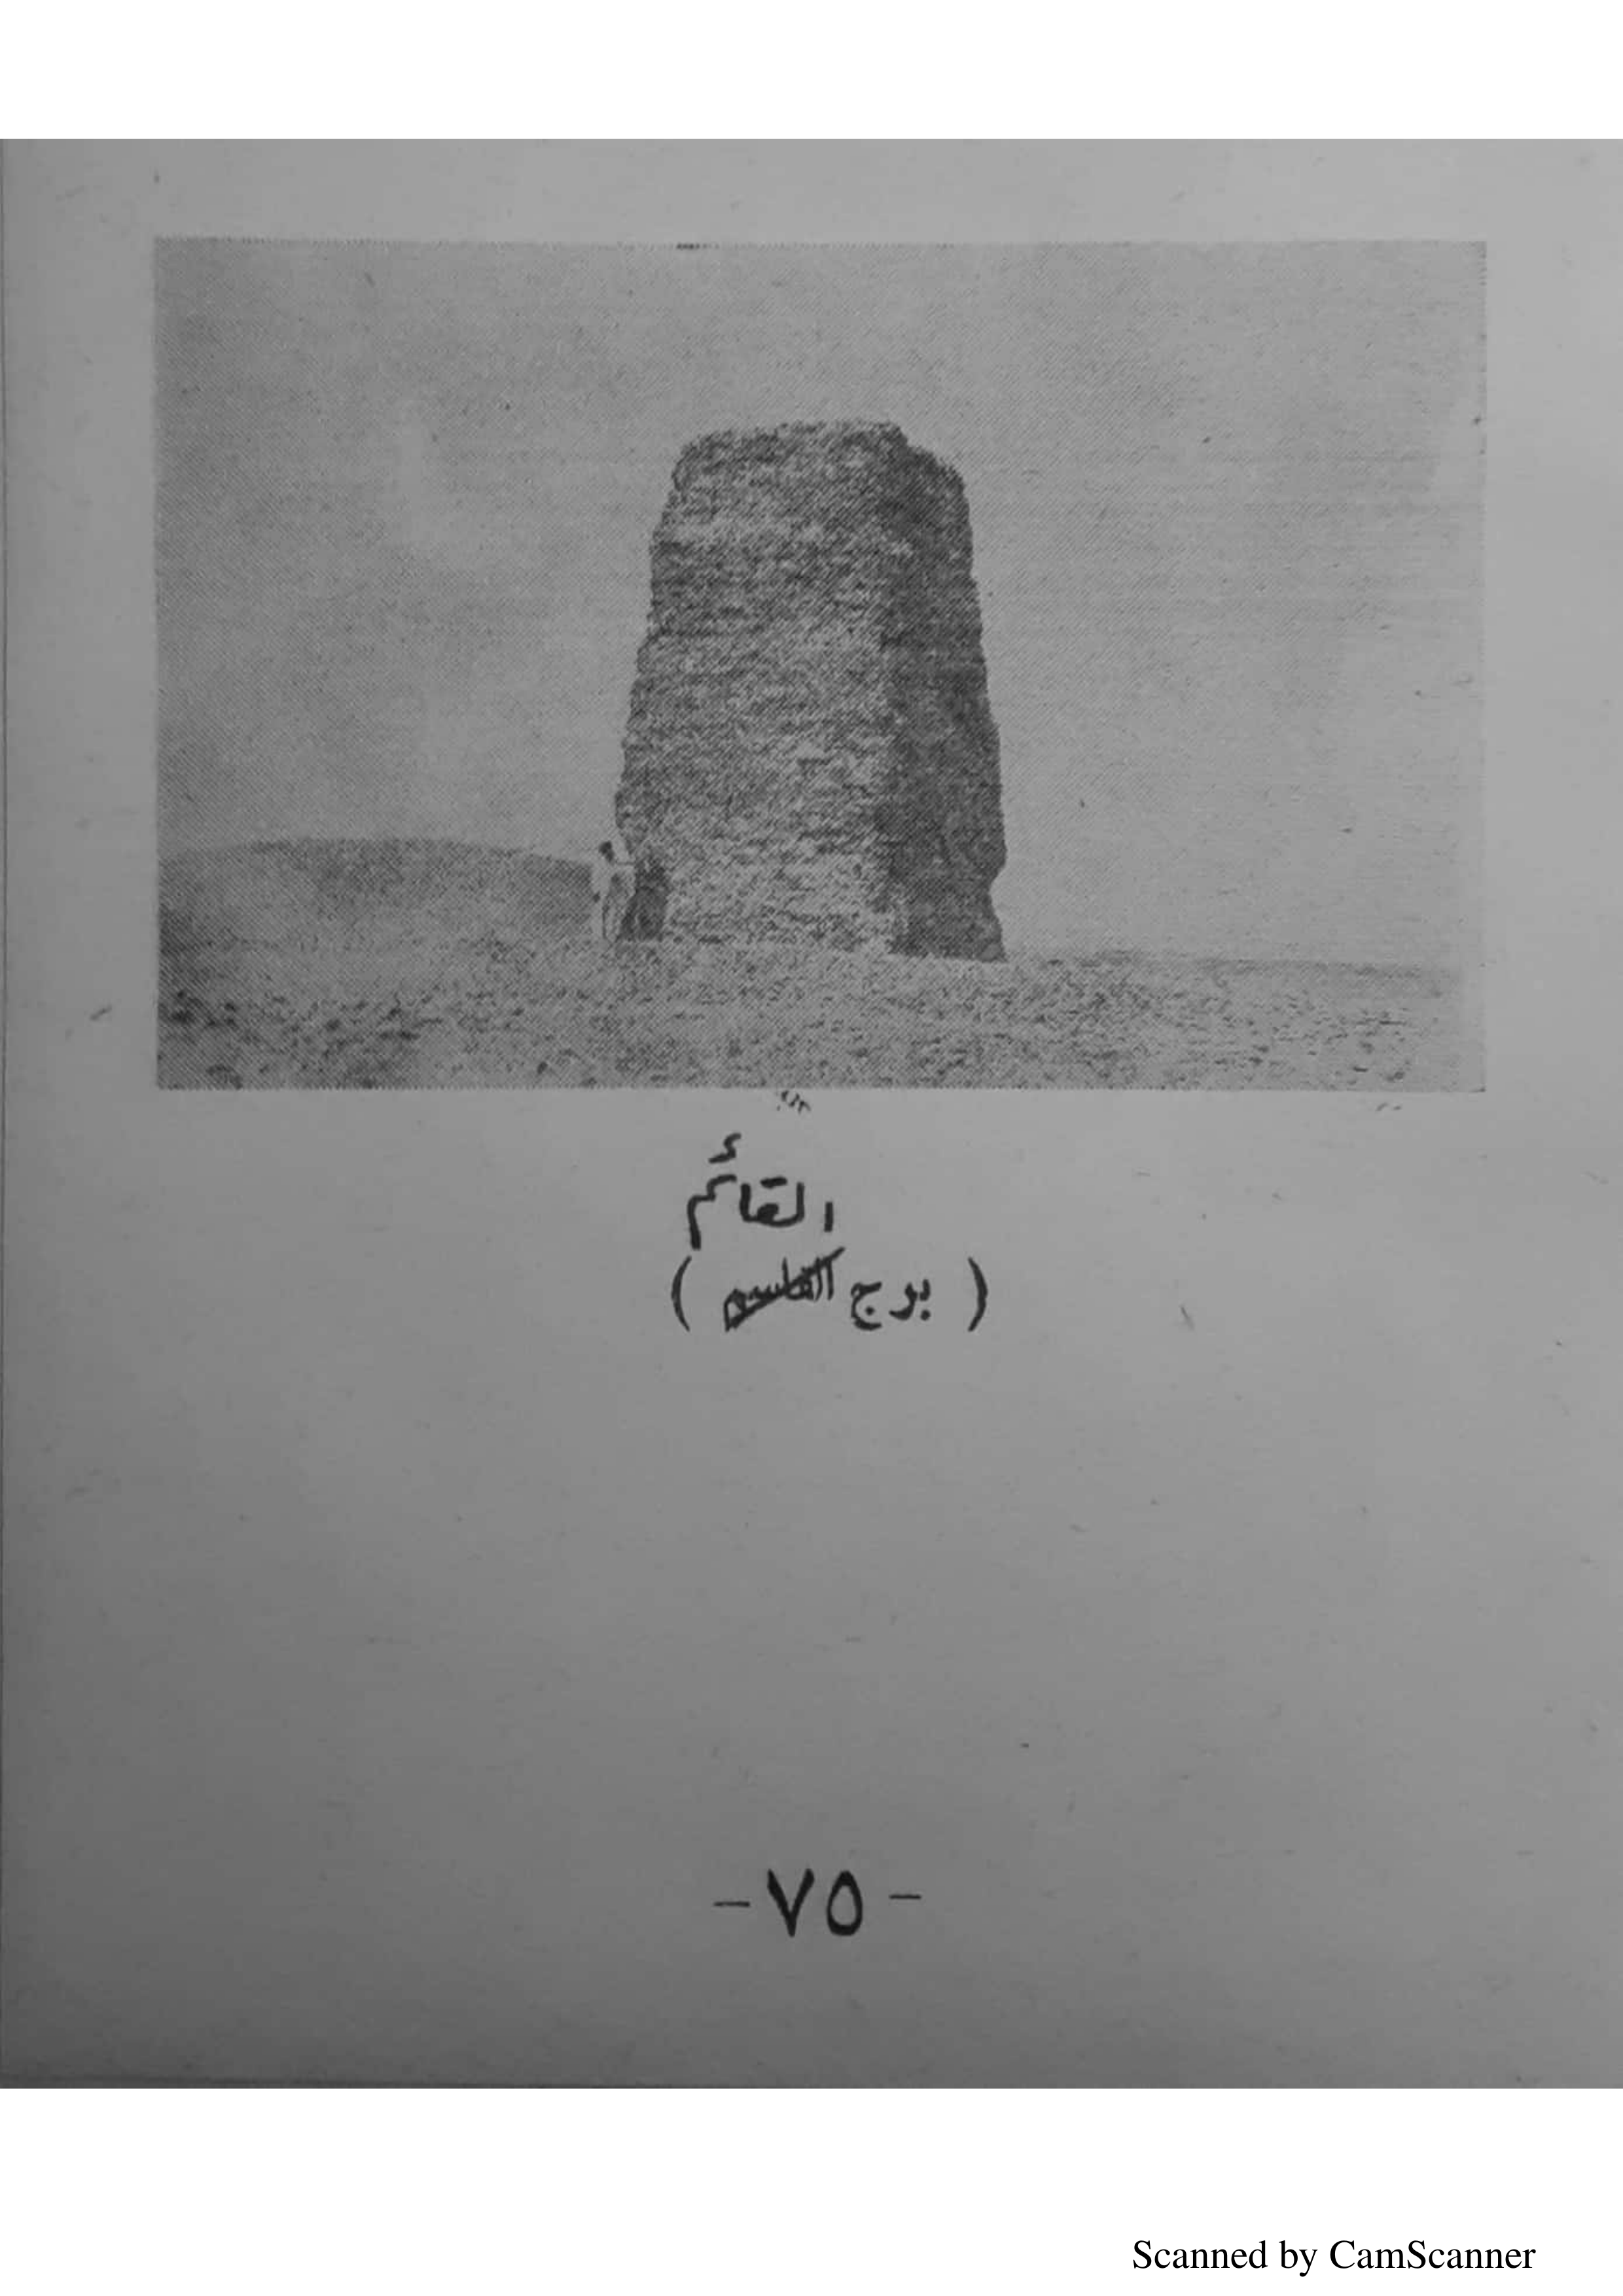 القائم
( برج القاسم )
- ٧٥ -
Scanned by CamScanner